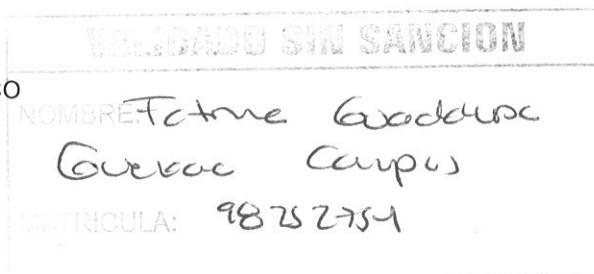 VALIDADO SIN SANCION
co
NOMBRE: Fatima Guadalupe
Guevac Campus
MATRICULA: 98252754